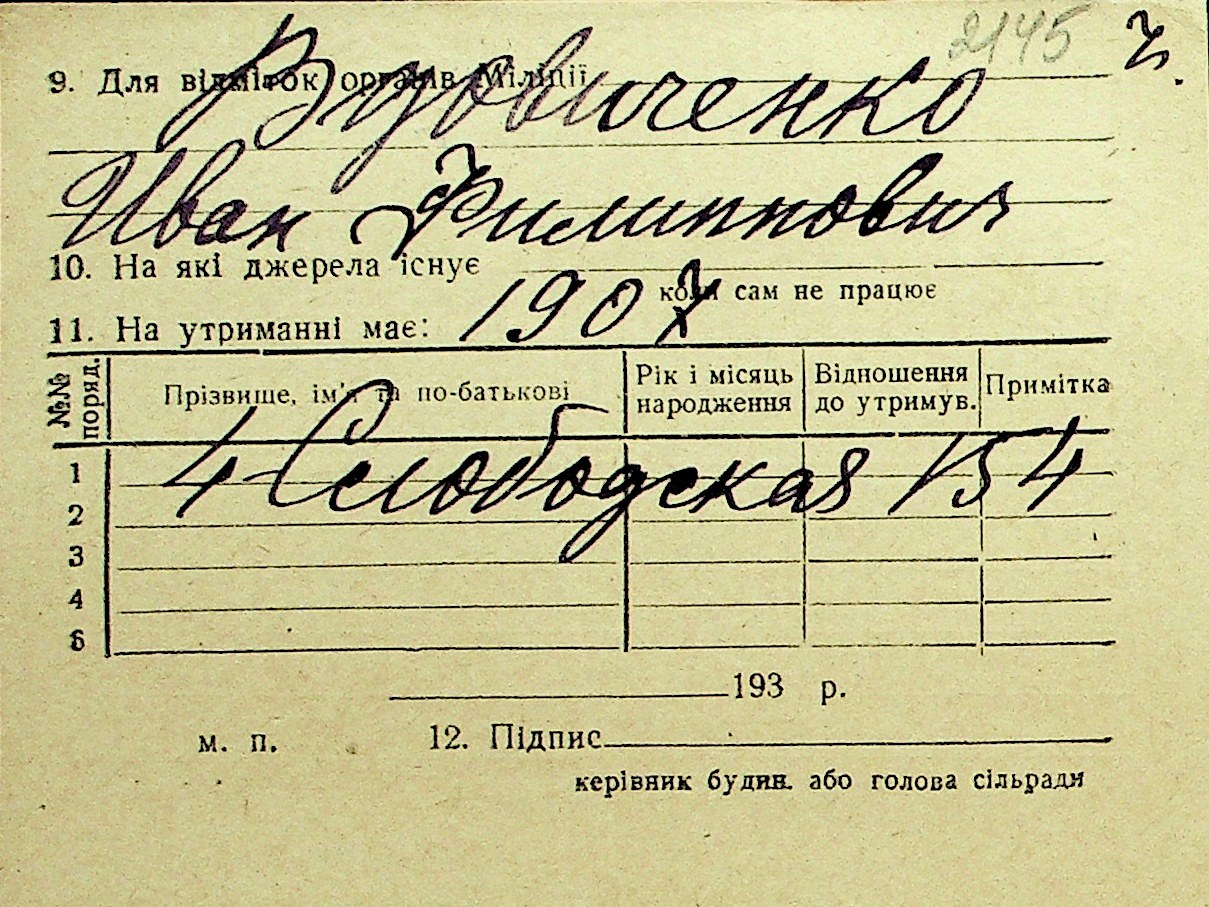 2145 ч.
9. Для відміток органів Міліції
Вдовиченко
Иван Филиппович
10. На які джерела існує
коли сам не працює
1907
11. На утриманні має:
№№ поряд.
Прізвище, ім'я та по-батькові
Рік і місяць народження
Відношення до утримув.
Примітка
4 Слободская 154
1
2
3
4
5
193 р.
м. п.
12. Підпис
керівник будин. або голова сільради